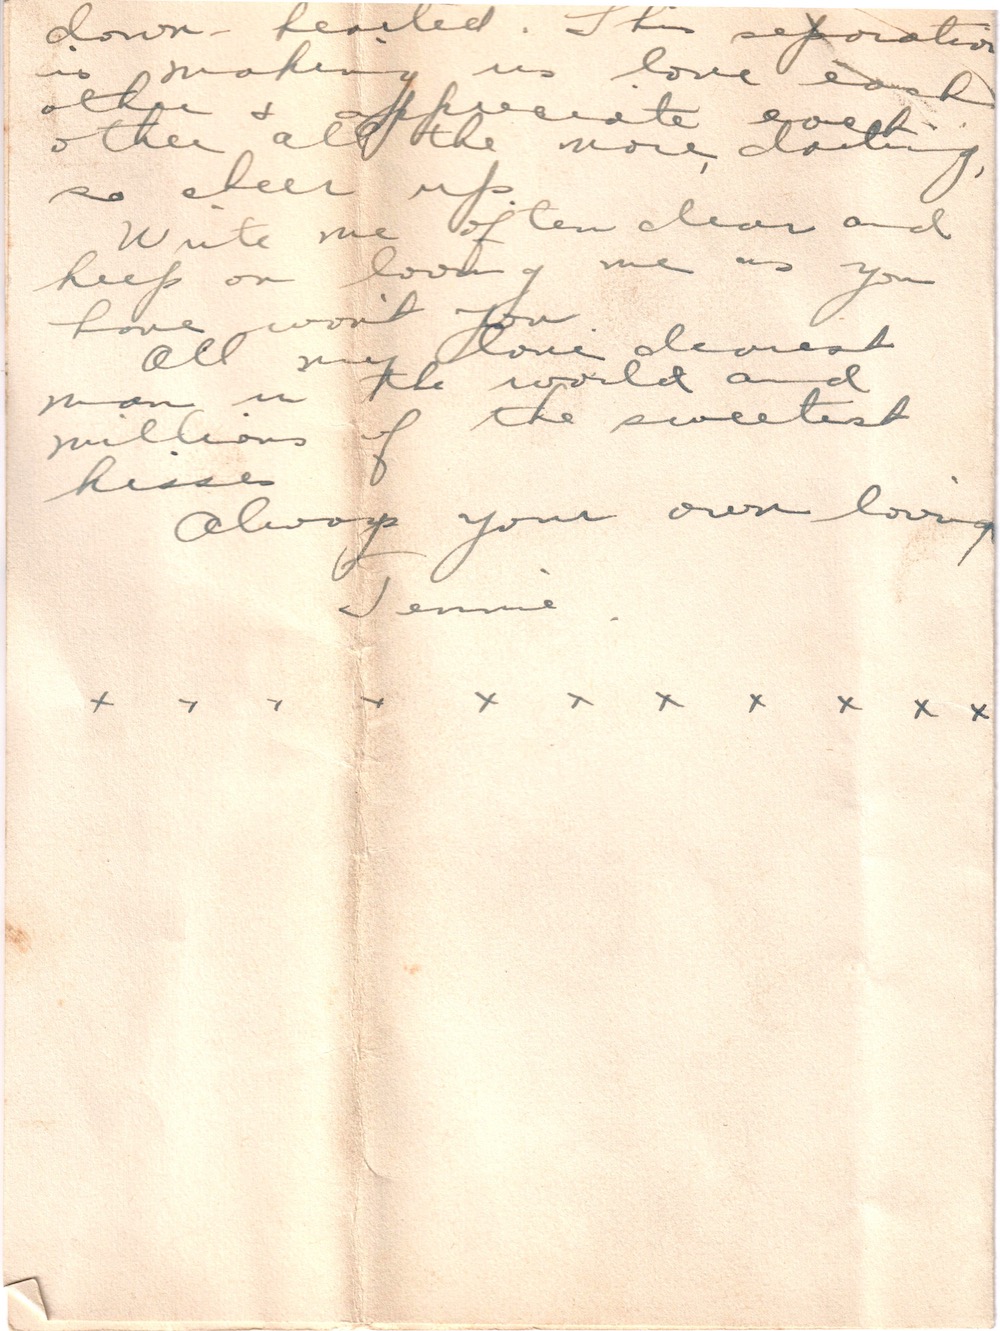 down-hearted. This separation
is making us love each
other & appreciate each
other all the more, darling,
so cheer up.
Write me often dear and
keep on loving me as you
have won't you
All my love dearest
man in the world and
millions of the sweetest
kisses
Always your own loving
Jennie.
x x x x x x x x x x x